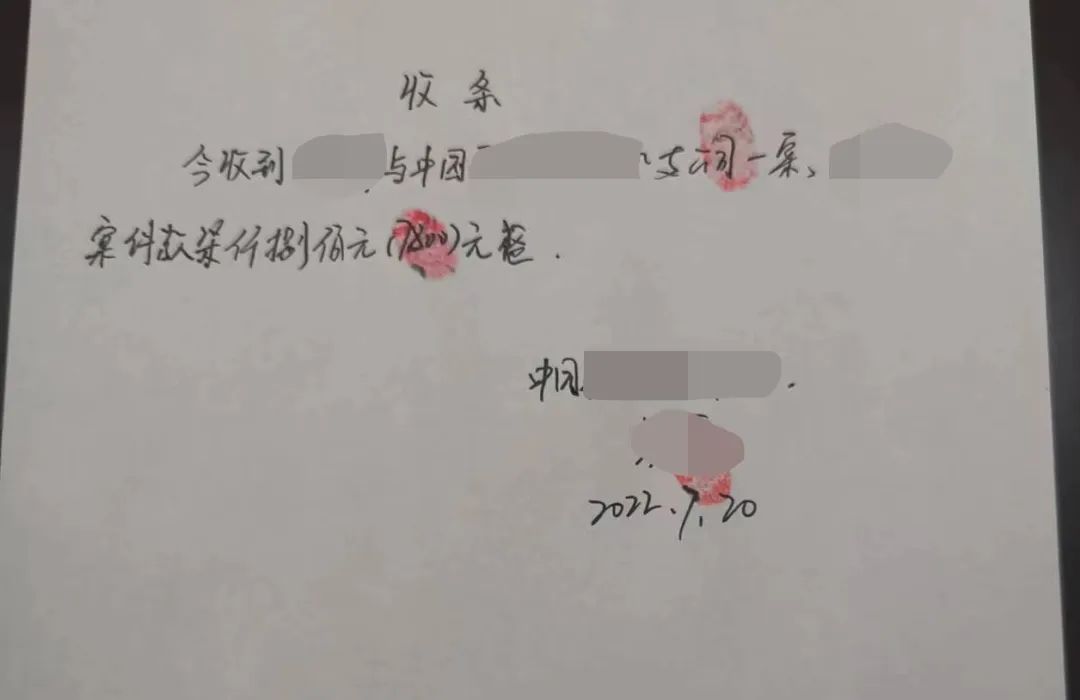 收条
今收到 与中国 支公司一案、
案件款柒仟捌佰元(7800)元整.
中国 .
2022.7.20